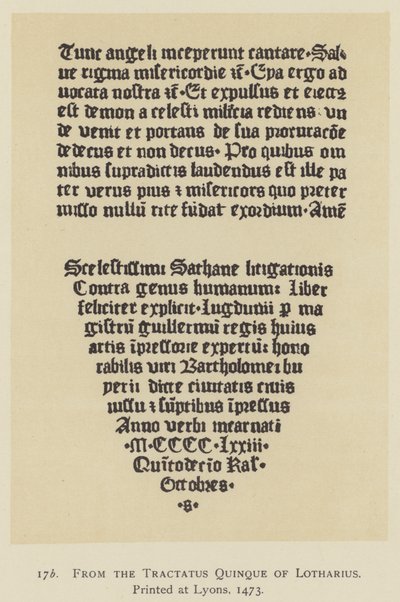 Tunc angeli inceperunt cantare. Sal
ue regina misericordie ⁊c̃. Eya ergo ad
uocata nostra ⁊c̃. Et expulsus et eiectꝰ
est demon a celesti milicia rediens. vn
de venit et portans de sua procuracōe
dedecus et non decus. Pro quibus om
nibus supradictis laudendus est ille pa
ter verus pius ⁊ misericors quo preter
misso nullū rite fūdat᷑ exordium. Amē
Scelestissimi Sathane litigationis
Contra genus humanum: liber
feliciter explicit. lugdunii ꝑ ma
gistrū guillermū regis huius
artis īpressorie expertū: hono
rabilis viri Bartholomei bu
yerii dicte ciuitatis ciuis
iussu ⁊ sūptibus īpressus
Anno verbi incarnati
.M.CCCC.Lxxiii.
Quītodecīo Kal'.
Octobres.
.s.
17b. FROM THE TRACTATUS QUINQUE OF LOTHARIUS.
Printed at Lyons. 1473.